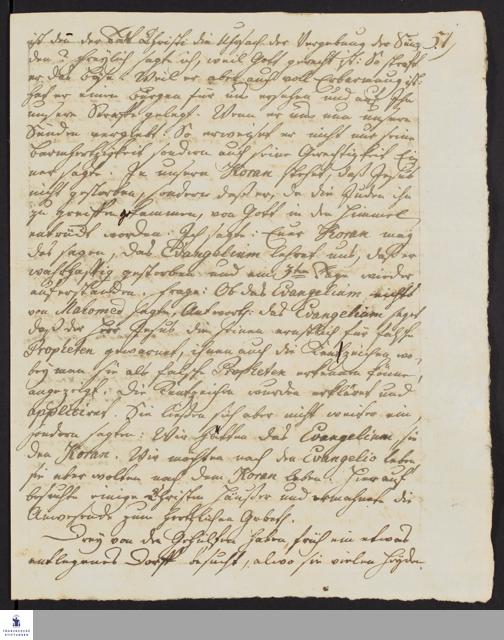 51
ist den der Todt Christi die Ursach der Vergebung der Sün-
den? Freylich sagte ich, weil Gott gerecht ist: So straft
er das Böse. Weil er aber auch voll Erbarmung ist:
hat er einen Bürgen für uns ersehen und auf Ihn
unsere Straffe gelegt. Wenn er uns nun unsere
Sünden vergiebt: So erweiset er nicht nur seine
Barmhertzigkeit sondern auch seine Gerechtigkeit. Ei-
ner sagte: In unserm Koran stehet, daß Jesus
nicht gestorben, sondern daß er, da die Juden ihn
zu greiffen kommen, von Gott in den Himmel
entrückt worden: Ich sagte: Euer Koran mag
das sagen, das Evangelium lehret uns, daß er
warhafftig gestorben und am 3ten Tage wieder
auferstanden. Frage: Ob das Evangelium nichts
von Mahomed sagte, Antwort: das Evangelium saget
daß der Herr Jesus die seinen ernstlich für falsche
Propheten gewarnet, ihnen auch die Kennzeichen wo-
bey man sie als falsche Propheten erkennen könne,
angezeigt. Die Kennzeichen wurden erkläret und
appliciret. Sie ließen sich aber nicht weiter ein
sondern sagten: Wir hätten das Evangelium sie
den Koran. Wir möchten nach dem Evangelio leben
sie aber wolten nach dem Koran leben. Hierauf
besuchte einige Christen Häuser und ermahnete die
Anwesende zum hertzlichen Gebeth.
Drey von den Gehülfen haben, früh ein etwas
entlegenes Dorff besucht, alwo sie vielen Heyden
FRANCKESCHE STIFTUNGEN